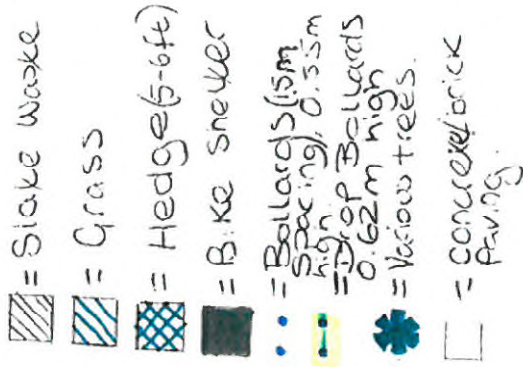 = Slake waste
= Grass
= Hedge (5-6ft)
= Bike shelter
= Bollards (1.5m
spacing), 0.55m
high.
= Drop Bollards
0.62m high
= Various trees.
= concrete/brick
Paving.